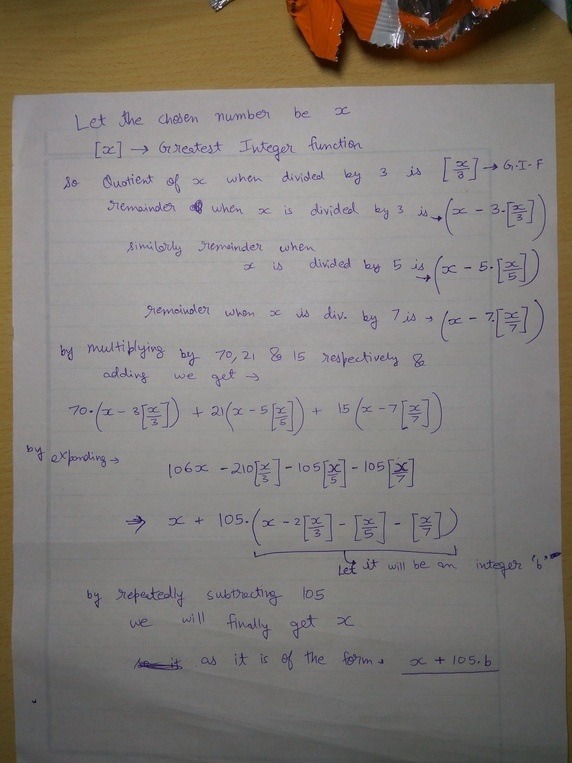 Let the chosen number be x
[x] → Greatest Integer function
So Quotient of x when divided by 3 is [x/3] → G.I.F
remainder when x is divided by 3 is → (x - 3.[x/3])
similerly remainder when
x is divided by 5 is → (x - 5.[x/5])
remainder when x is div. by 7 is → (x - 7.[x/7])
by multiplying by 70, 21 & 15 respectively &
adding we get →
70.(x - 3[x/3]) + 21(x - 5[x/5]) + 15(x - 7[x/7])
by expanding →
106x - 210[x/3] - 105[x/5] - 105[x/7]
⇒ x + 105.(x - 2[x/3] - [x/5] - [x/7])
Let it will be an integer 'b'
by repeatedly subtracting 105
we will finally get x
so it as it is of the form. x + 105.b